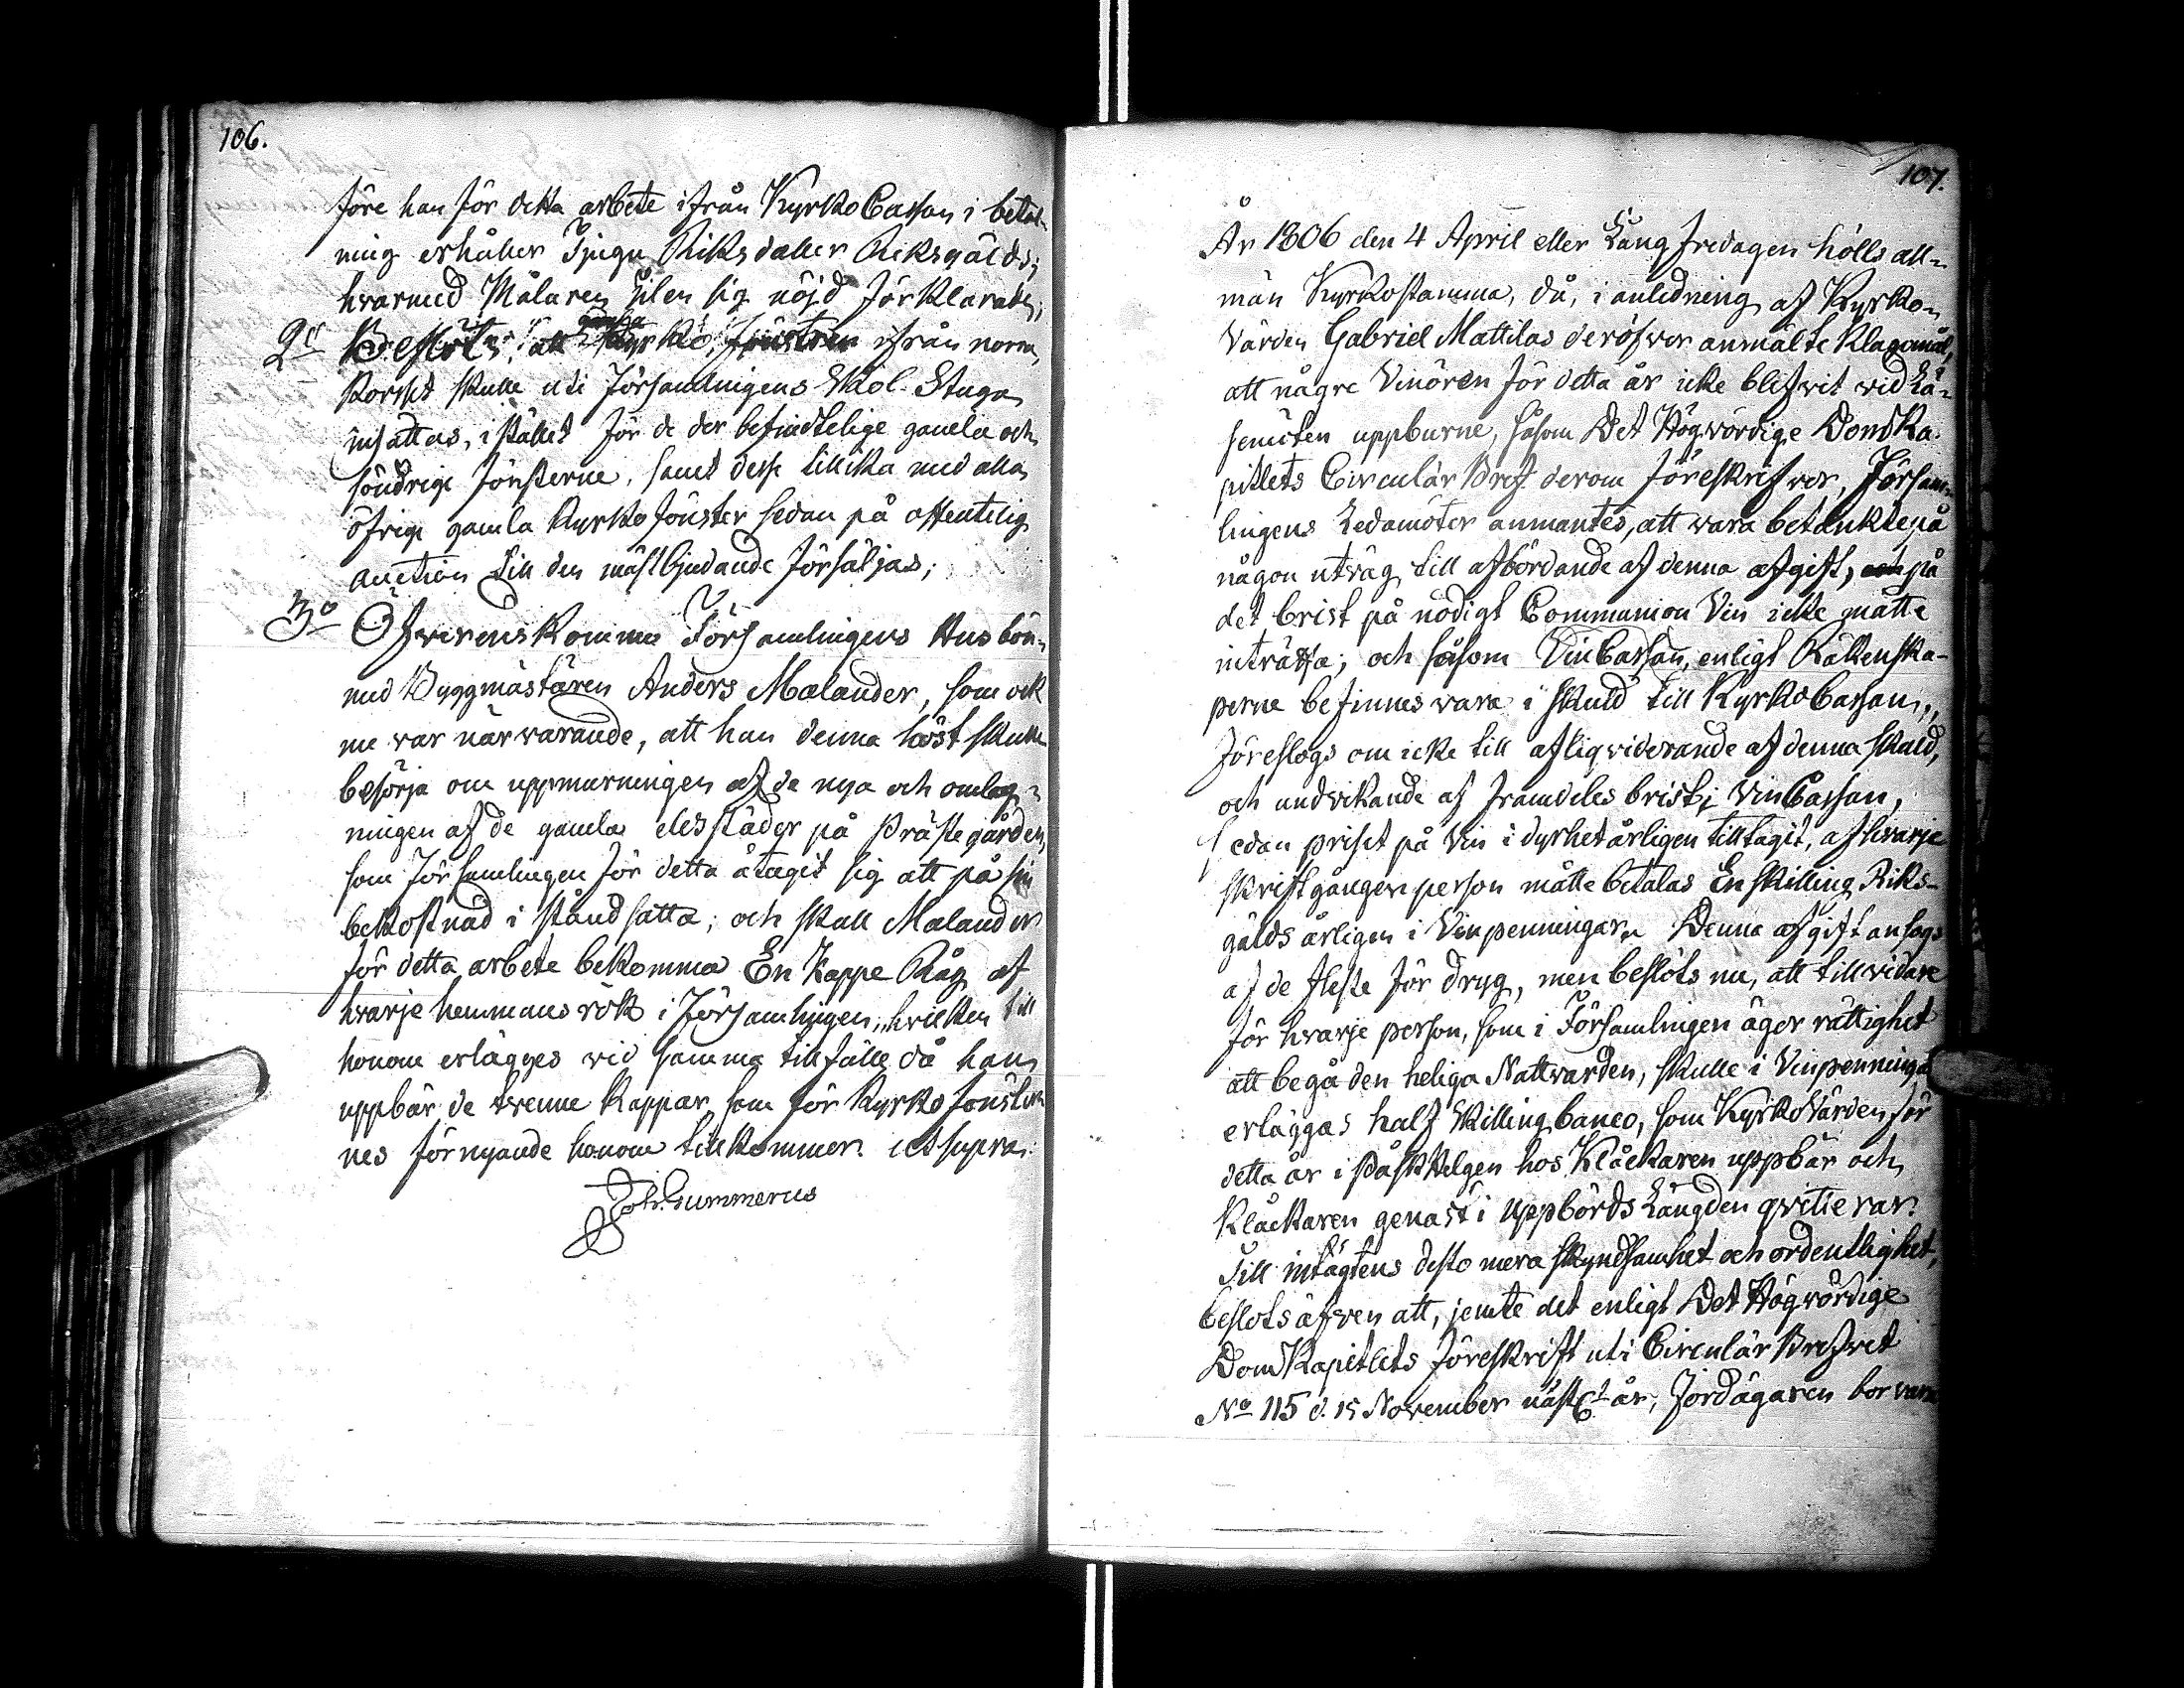 106.
före han för detta arbete ifrån KyrkoCassan i betal-
ning erhåller Tjugu Riksdaller Riksgälds;
hvarmed Målaren sig nöjd förklarade;
2o Beslöts: att gamla Kyrko Fönstren ifrån norra
Korset skulle uti Församlingens Skol-Stuga
insättas, i stället för de der befindtelige gamla och
söndriga fönsterne, samt desse tillika med alla
öfrige gamla Kyrko fönster sedan på offentelig
auction till den mästbjudande försäljas;
3o Öfverenskommo Församlingens Husbön-
med Byggmästaren Anders Malander, som ock
nu var närvarande, att han denna höst skulle
besörja om uppmurningen af de nya och omlag-
ningen af de gamla eldstäder på Prästegården,
som församlingen för detta åtagit sig att på sin
bekostnad i stånd sätta; och skall Malander
för detta arbete bekomma En Kappe Råg af
hvarje hemmans rök i Församlingen, hvilken till
honom erlägges vid samma tillfälle då han
uppbär de tvenne Kappar som för Kyrko fönster-
nes förnyande honom tillkommer. ut supra.
Joh: Gummerus
107.
År 1806 den 4 April eller Lång Fredagen hölls all-
män Kyrkostämma, då, i anledning af Kyrko-
Värden Gabriel Mattilas deröfver anmälte Klagomål,
att någre Vinören för detta år icke blifvit vid Lä-
semöten uppburne, såsom Det Högvördige Domka-
pitlets Circulär Bref derom föreskrifver, Försam-
lingens Ledamöter anmantes, att vara betänkte på
någon utväg till afbördande af denna afgift, på
det brist på nödigt Communion Vin icke måtte
inträffa; och såsom VinCassan, enligt Räkenska-
perne befinnes vara i skuld till KyrkoCassan,
föreslogs om icke till afliqviderande af denna skuld,
och undvikande af framdeles brist i VinCassan,
sedan priset på Vin i dyrhet årligen tilltagit, af hvarje
skriftgången person måtte betalas En skilling Riks-
gälds årligen i Vinpenningar. Denna afgift ansågs
af de fleste för dryg, men beslöts nu, att tillvidare
för hvarje person, som i Församlingen äger rättighet
att begå den heliga Nattvarden, skulle i Vinpenningar
erläggas half Skilling banco, som KyrkoVärden för
detta år i Påskhelgen hos Klåckaren uppbär och
Klåckaren genast i Uppbörds Längden qvitterar.
Till intägtens desto mera skyndsamhet och ordentlighet,
beslöts äfven att, jemte det enligt Det Högvördige
DomKapitlets föreskrift uti Circulär Brefvet
No 115 d. 15 November näst år, Jordägaren bör vara